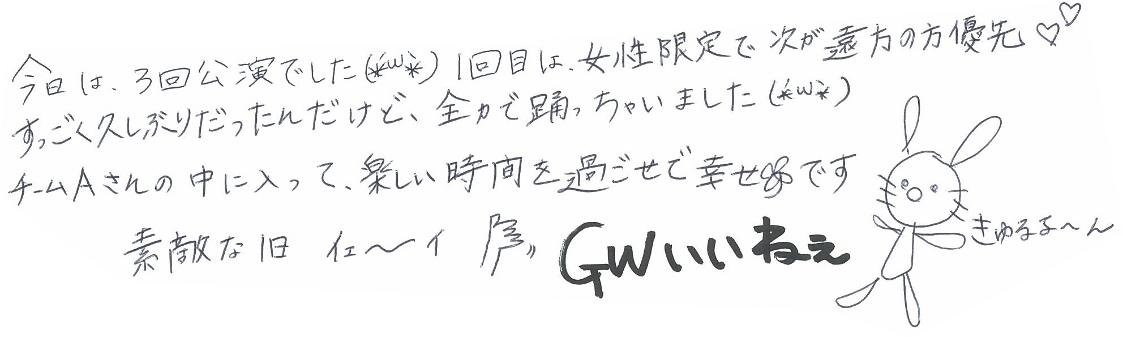 今日は、3回公演でした(*´ω`*) 1回目は、女性限定で 次が遠方の方優先♡♡
すっごく久しぶりだったんだけど、全力で踊っちゃいました(*´ω`*)
チームAさんの中に入って、楽しい時間を過ごせて幸せです
素敵な1日 イェ〜イ GWいいねぇ
きゅるるる〜ん